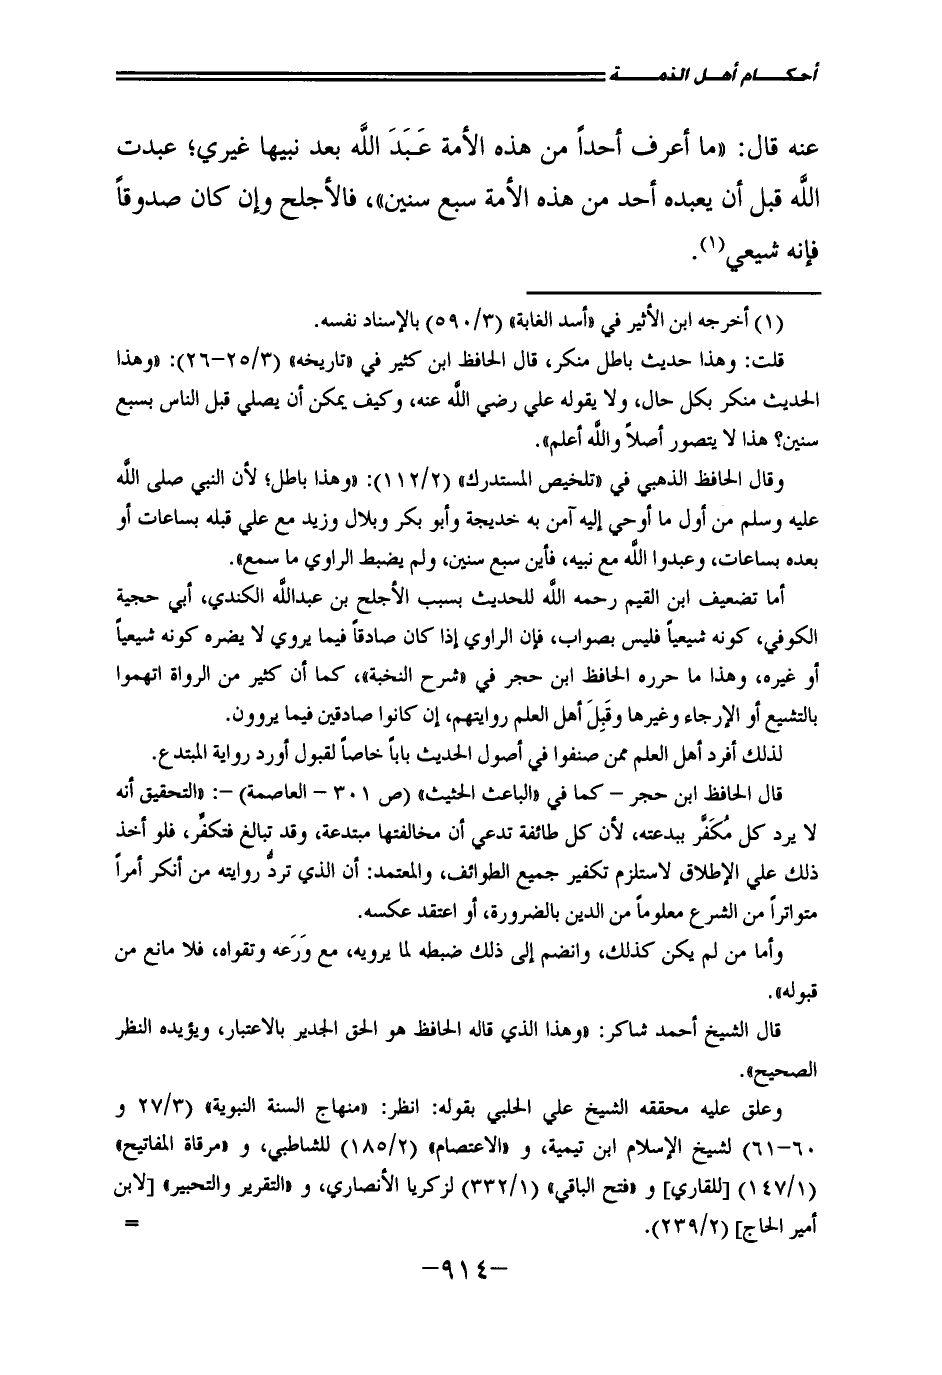 أحكـــام أهـل الذمـــة
عنه قال: «ما أعرف أحداً من هذه الأمة عَبَدَ اللَّه بعد نبيها غيري؛ عبدت
اللَّه قبل أن يعبده أحد من هذه الأمة سبع سنين»، فالأجلح وإن كان صدوقاً
فإنه شيعي(١).
(١) أخرجه ابن الأثير في «أسد الغابة» (٥٩٠/٣) بالإسناد نفسه.
قلت: وهذا حديث باطل منكر، قال الحافظ ابن كثير في «تاريخه» (٢٥/٣-٢٦): «وهذا
الحديث منكر بكل حال، ولا يقوله علي رضي اللَّه عنه، وكيف يمكن أن يصلي قبل الناس بسبع
سنين؟ هذا لا يتصور أصلاً واللَّه أعلم».
وقال الحافظ الذهبي في «تلخيص المستدرك» (١١٢/٢): «وهذا باطل؛ لأن النبي صلى اللَّه
عليه وسلم من أول ما أوحي إليه آمن به خديجة وأبو بكر وبلال وزيد مع علي قبله بساعات أو
بعده بساعات، وعبدوا اللَّه مع نبيه، فأين سبع سنين، ولم يضبط الراوي ما سمع».
أما تضعيف ابن القيم رحمه اللَّه للحديث بسبب الأجلح بن عبداللَّه الكندي، أبي حجية
الكوفي، كونه شيعياً فليس بصواب، فإن الراوي إذا كان صادقاً فيما يروي لا يضره كونه شيعياً
أو غيره، وهذا ما حرره الحافظ ابن حجر في «شرح النخبة»، كما أن كثير من الرواة اتهموا
بالتشيع أو الإرجاء وغيرها وقَبِلَ أهل العلم روايتهم، إن كانوا صادقين فيما يروون.
لذلك أفرد أهل العلم ممن صنفوا في أصول الحديث باباً خاصاً لقبول أورد رواية المبتدع.
قال الحافظ ابن حجر - كما في «الباعث الحثيث» (ص ٣٠١ - العاصمة) -: «التحقيق أنه
لا يرد كل مُكَفَّر ببدعته، لأن كل طائفة تدعي أن مخالفتها مبتدعة، وقد تبالغ فتكفِّر، فلو أخذ
ذلك علي الإطلاق لاستلزم تكفير جميع الطوائف، والمعتمد: أن الذي تردُّ روايته من أنكر أمراً
متواتراً من الشرع معلوماً من الدين بالضرورة، أو اعتقد عكسه.
وأما من لم يكن كذلك، وانضم إلى ذلك ضبطه لما يرويه، مع وَرَعه وتقواه، فلا مانع من
قبوله».
قال الشيخ أحمد شاكر: «وهذا الذي قاله الحافظ هو الحق الجدير بالاعتبار، ويؤيده النظر
الصحيح».
وعلق عليه محققه الشيخ علي الحلبي بقوله: انظر: «منهاج السنة النبوية» (٢٧/٣ و
٦٠-٦١) لشيخ الإسلام ابن تيمية، و «الاعتصام» (١٨٥/٢) للشاطبي، و «مرقاة المفاتيح»
(١٤٧/١) [للقاري] و «فتح الباقي» (٣٣٢/١) لزكريا الأنصاري، و «التقرير والتحبير» [لابن
أمير الحاج] (٢٣٩/٢). =
-٩١٤-